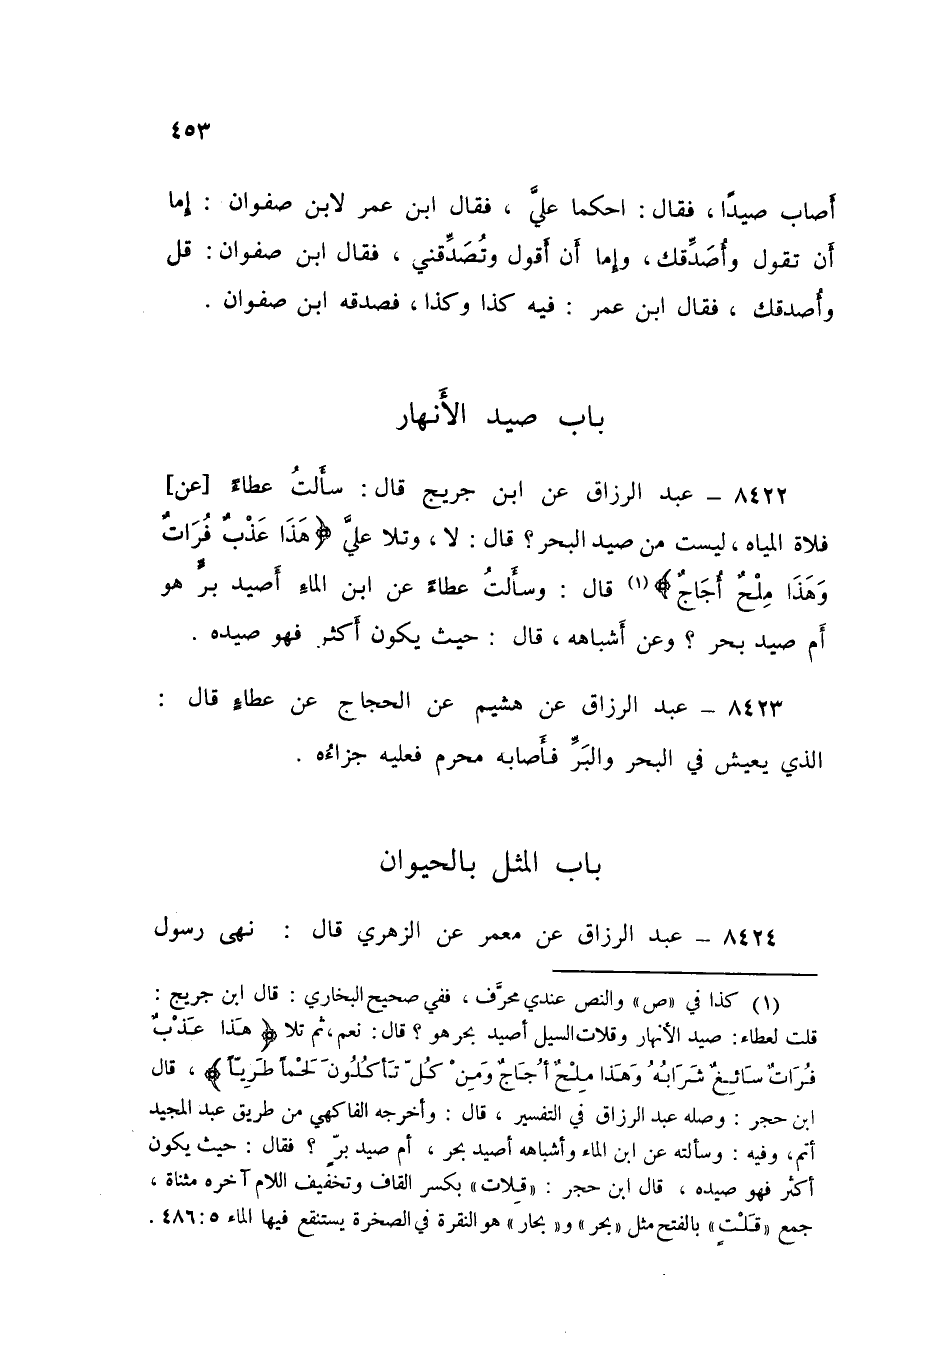 ٤٥٣
أصاب صيدًا ، فقال : احكما عليَّ ، فقال ابن عمر لابن صفوان : إما
أن تقول وأُصَدِّقك ، وإما أن أقول وتُصَدِّقني ، فقال ابن صفوان : قل
وأُصدقك ، فقال ابن عمر : فيه كذا وكذا ، فصدقه ابن صفوان .
باب صيد الأَنهار
٨٤٢٢ – عبد الرزاق عن ابن جريج قال : سأَلتُ عطاءً [عن]
فلاة المياه ، ليست من صيد البحر ؟ قال : لا ، وتلا عليَّ ﴿هَذَا عَذْبٌ فُرَاتٌ
وَهَذَا مِلْحٌ أُجَاجٌ﴾ (١) قال : وسأَلتُ عطاءً عن ابن الماءِ أَصيد برٍّ هو
أَم صيد بحر ؟ وعن أَشباهه ، قال : حيث يكون أَكثر فهو صيده .
٨٤٢٣ – عبد الرزاق عن هشيم عن الحجاج عن عطاءٍ قال :
الذي يعيش في البحر والبَرِّ فأَصابه محرم فعليه جزاءُه .
باب المثل بالحيوان
٨٤٢٤ – عبد الرزاق عن معمر عن الزهري قال : نهى رسول
(١) كذا في «ص» والنص عندي محرَّف ، ففي صحيح البخاري : قال ابن جريج :
قلت لعطاء : صيد الأنهار وقلات السيل أصيد بحر هو ؟ قال : نعم ، ثم تلا ﴿هَذَا عَذْبٌ
فُرَاتٌ سَائِغٌ شَرَابُهُ وَهَذَا مِلْحٌ أُجَاجٌ وَمِنْ كُلٍّ تَأْكُلُونَ لَحْماً طَرِيّاً﴾ ، قال
ابن حجر : وصله عبد الرزاق في التفسير ، قال : وأخرجه الفاكهي من طريق عبد المجيد
أتم ، وفيه : وسألته عن ابن الماء وأشباهه أصيد بحر ، أم صيد برٍّ ؟ فقال : حيث يكون
أكثر فهو صيده ، قال ابن حجر : «قِلات» بكسر القاف وتخفيف اللام آخره مثناة ،
جمع «قَلْتٍ» بالفتح مثل «بحر» و«بحار» هو النقرة في الصخرة يستنقع فيها الماء ٥ : ٤٨٦ .